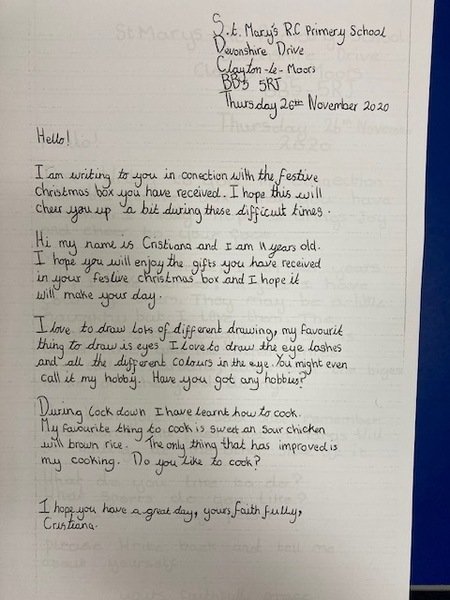 S.t. Mary's R.C Primery School
Devonshire Drive
Clayton-le-Moors
BB5 5RJ
Thursday 26th November 2020
Hello!
I am writing to you in conection with the festive
christmas box you have received. I hope this will
cheer you up a bit during these difficult times.
Hi my name is Cristiana and I am 11 years old.
I hope you will enjoy the gifts you have received
in your festive christmas box and I hope it
will make your day.
I love to draw lots of different drawing, my favourit
thing to draw is eyes I love to draw the eye lashes
and all the different colours in the eye. You might even
call it my hobby. Have you got any hobbies?
During lock down I have learnt how to cook.
My favourite thing to cook is sweet an sour chicken
will brown rice. The only thing that has improved is
my cooking. Do you like to cook?
I hope you have a great day, yours faith fully,
Cristiana.